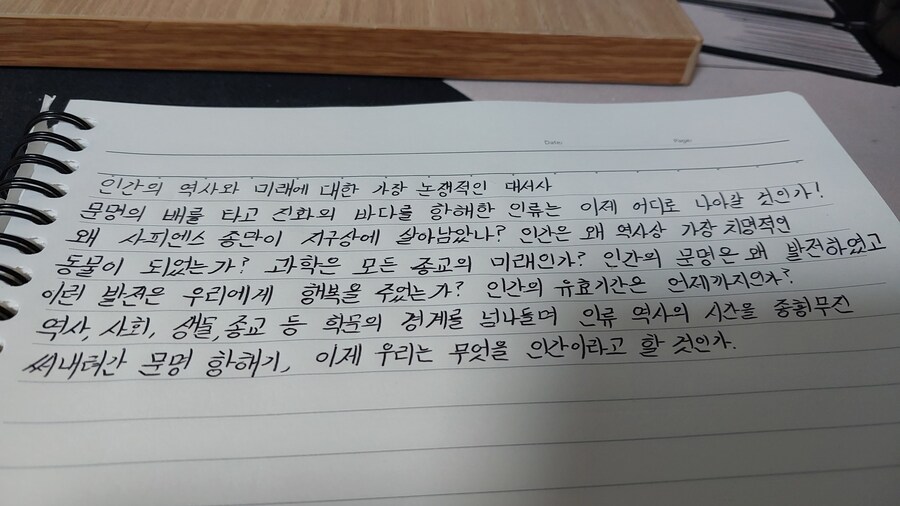 Date: Page:
인간의 역사와 미래에 대한 가장 논쟁적인 대서사
문명의 배를 타고 진화의 바다를 항해한 인류는 이제 어디로 나아갈 것인가!
왜 사피엔스 종만이 지구상에 살아남았나? 인간은 왜 역사상 가장 치명적인
동물이 되었는가? 과학은 모든 종교의 미래인가? 인간의 문명은 왜 발전하였고
이런 발전은 우리에게 행복을 주었는가? 인간의 유효기간은 언제까지인가?
역사, 사회, 생물, 종교 등 학문의 경계를 넘나들며 인류 역사의 시간을 종횡무진
써내려간 문명 항해기, 이제 우리는 무엇을 인간이라고 할 것인가.